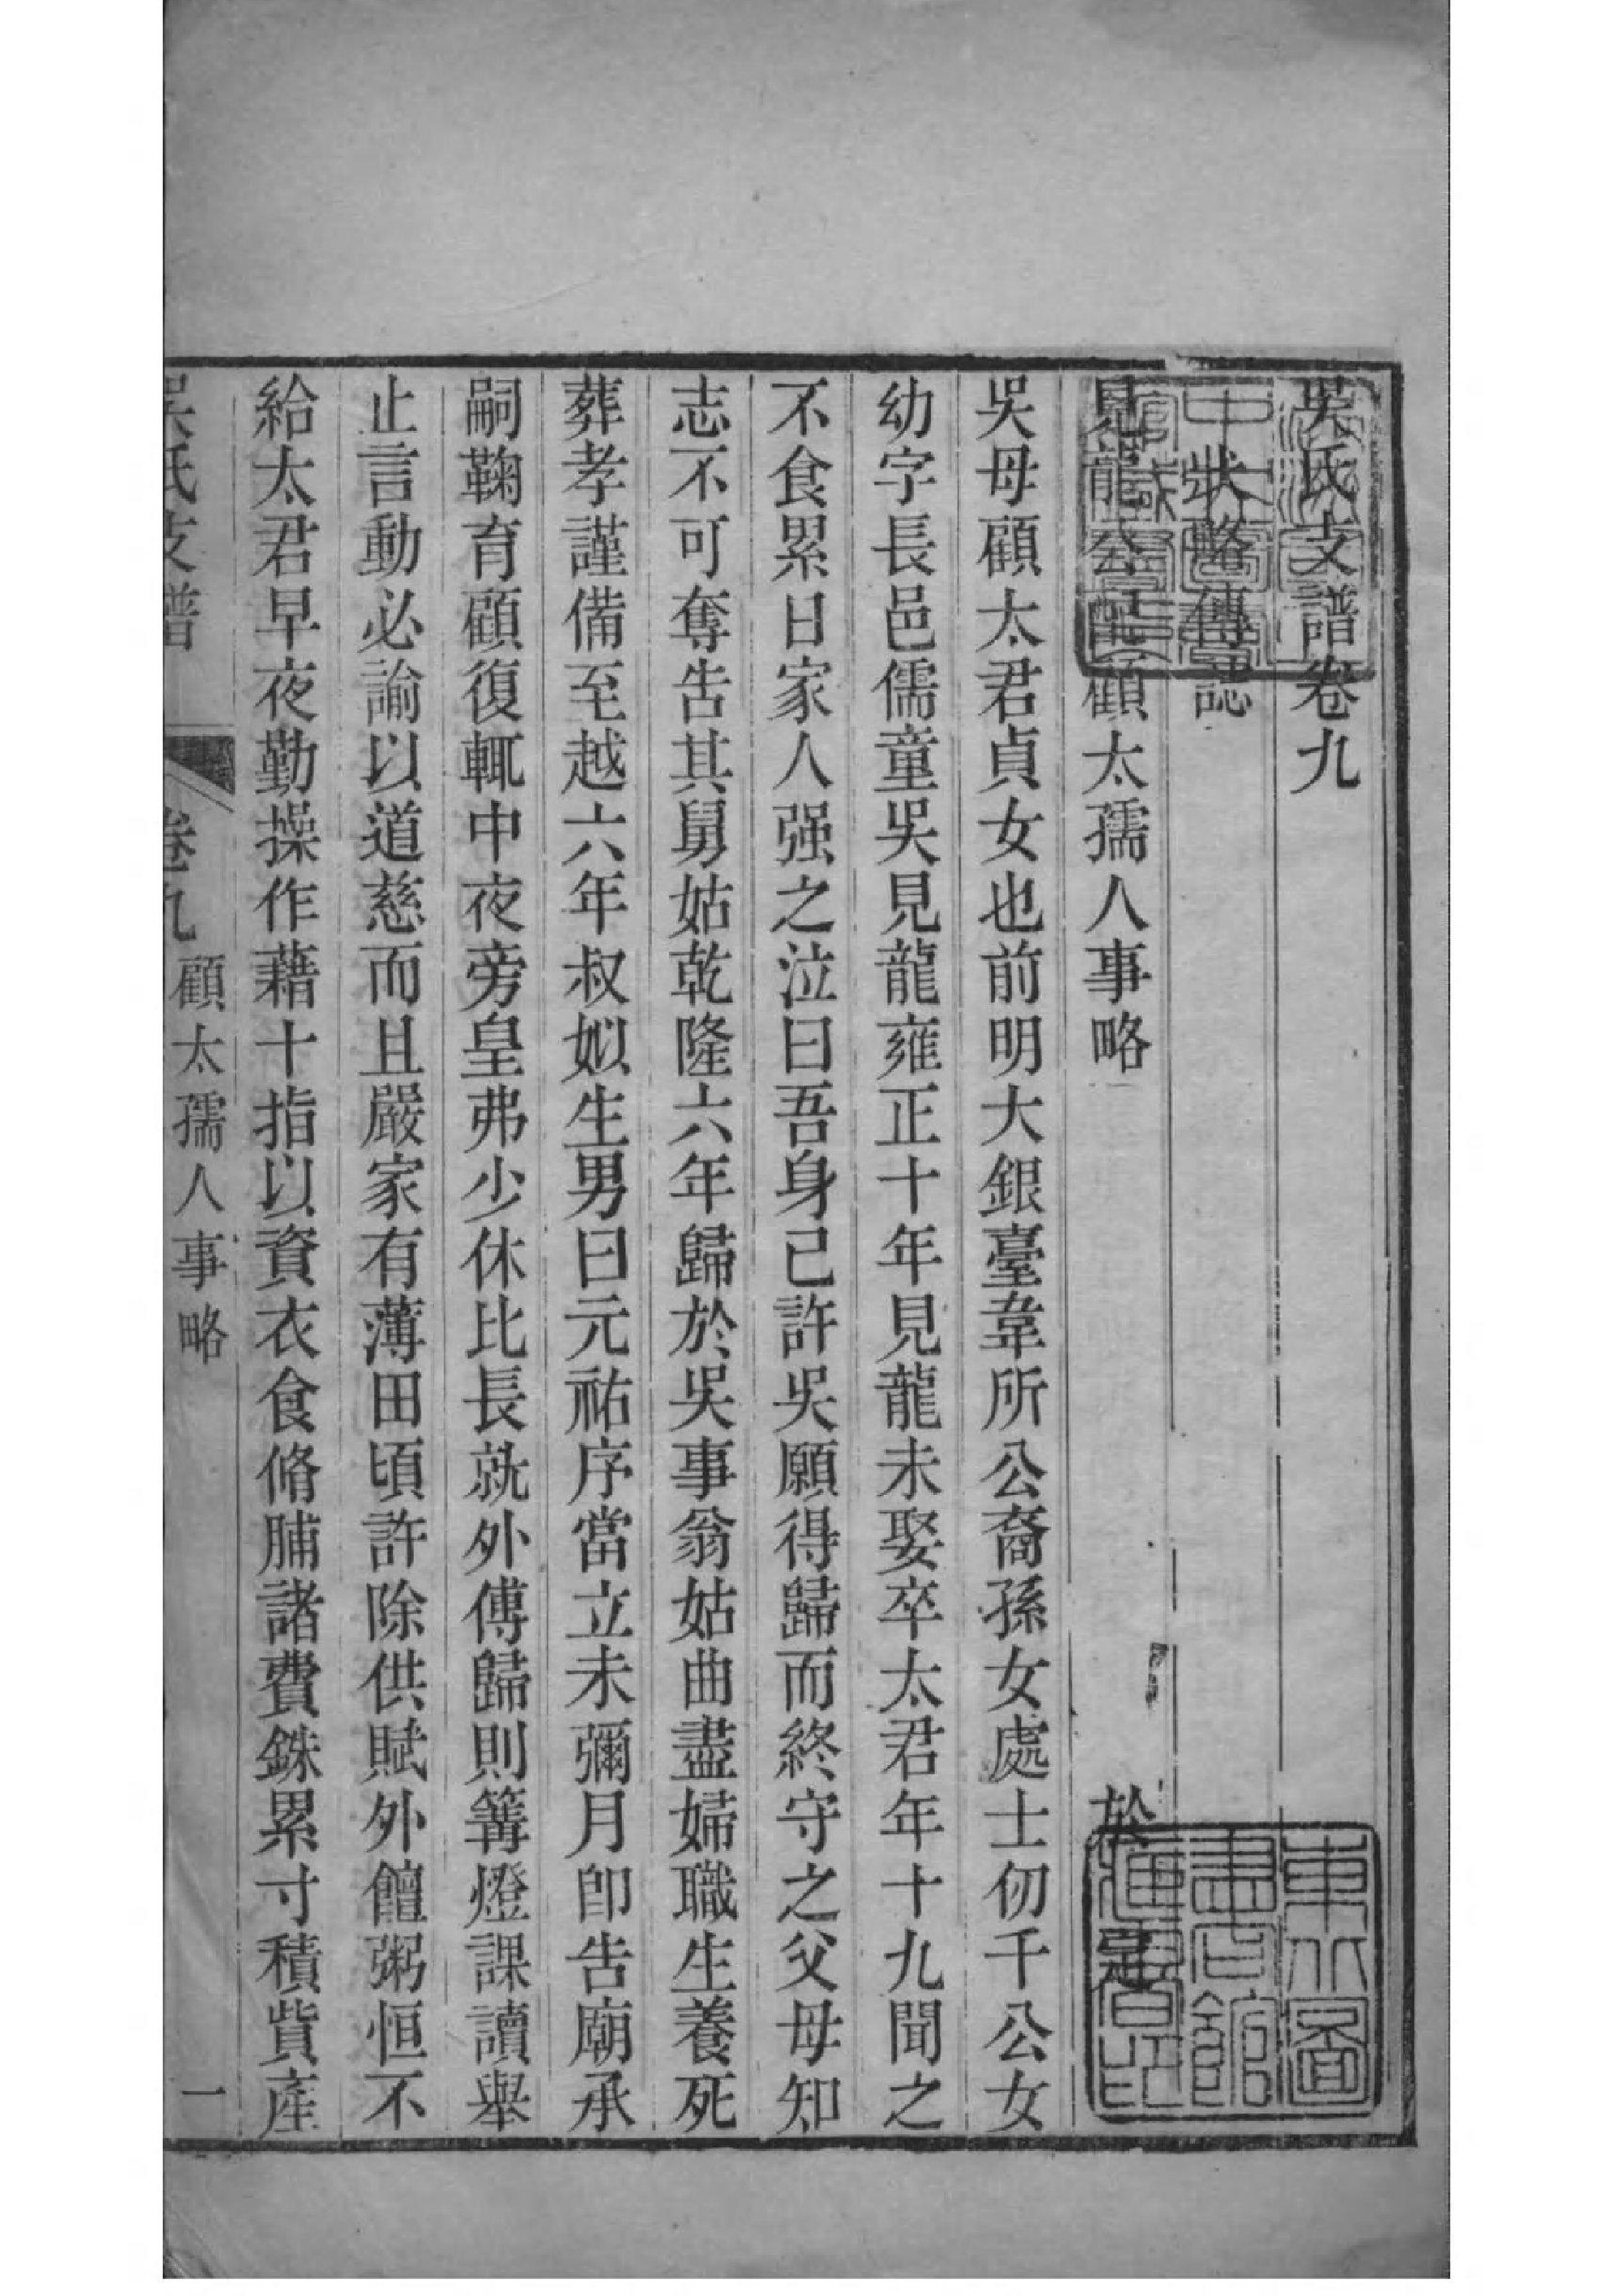 吳氏支譜卷九
狀略傳誌
見龍公配顧太孺人事略
於
吳母顧太君貞女也前明大銀臺韋所公裔孫女處士仞千公女
幼字長邑儒童吳見龍雍正十年見龍未娶卒太君年十九聞之
不食累日家人强之泣曰吾身已許吳願得歸而終守之父母知
志不可奪告其舅姑乾隆六年歸於吳事翁姑曲盡婦職生養死
葬孝謹備至越六年叔姒生男曰元祐序當立未彌月卽告廟承
嗣鞠育顧復輒中夜旁皇弗少休比長就外傅歸則篝燈課讀舉
止言動必諭以道慈而且嚴家有薄田頃許除供賦外饘粥恒不
給太君早夜勤操作藉十指以資衣食脩脯諸費銖累寸積貲產
吳氏支譜
卷九
顧太孺人事略
一